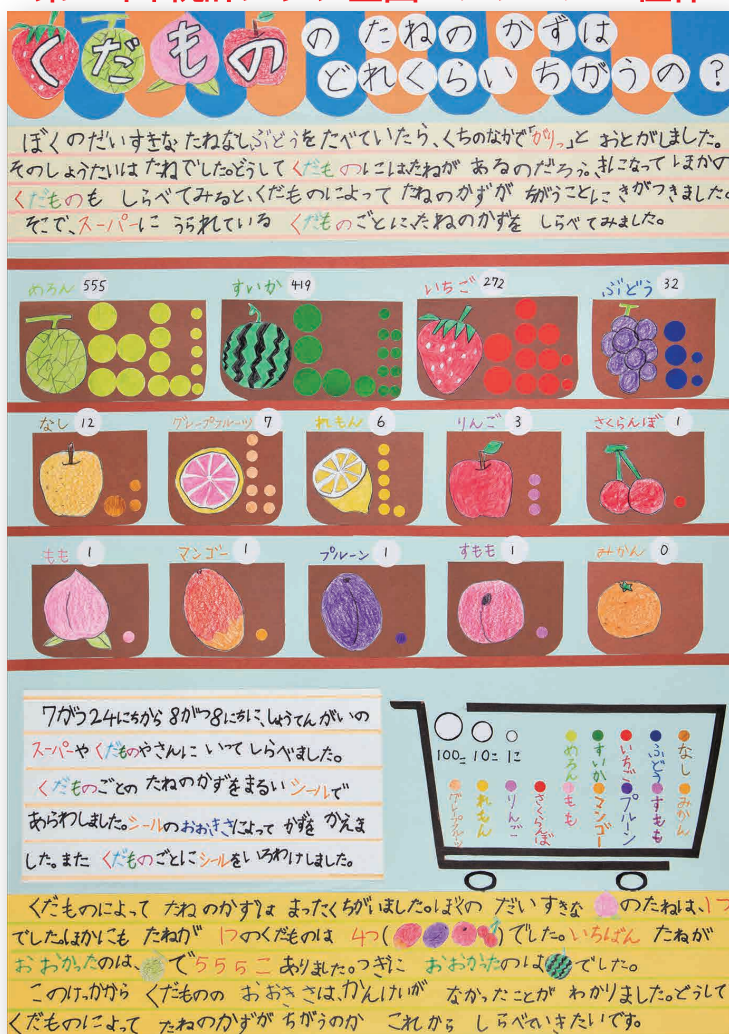 くだもの の たねの かずは
どれくらい ちがうの？
ぼくのだいすきな たねなしぶどうをたべていたら、くちのなかで「がりっ」と おとがしました。
そのしょうたいは たねでした。どうして くだものにはたねが あるのだろう。きになって ほかの
くだものも しらべてみると、くだものによって たねのかずが ちがうことに きがつきました。
そこで、スーパーに うられている くだものごとに、たねのかずを しらべてみました。
めろん 555 すいか 419 いちご 272 ぶどう 32
なし 12 グレープフルーツ 7 れもん 6 りんご 3 さくらんぼ 1
もも 1 マンゴー 1 プルーン 1 すもも 1 みかん 0
7がつ24にちから 8がつ8にちに、しょうてんがいの
スーパーや くだものやさんに いって しらべました。
くだものごとの たねのかずをまるい シールで
あらわしました。シールのおおきさによって かずを かえま
した。また くだものごとにシールをいろわけしました。
100こ 10こ 1こ
めろん すいか いちご ぶどう なし
グレープフルーツ れもん りんご さくらんぼ もも マンゴー プルーン すもも みかん
くだものによって たねのかずは まったくちがいました。ぼくの だいすきな のたねは、1つ
でした。ほかにも たねが 1つのくだものは 4つ( )でした。いちばん たねが
おおかったのは、 で555こ ありました。つぎに おおかったのは でした。
このけっかから くだものの おおきさは、かんけいが なかったことが わかりました。どうして
くだものによって たねのかずが ちがうのか これから しらべていきたいです。